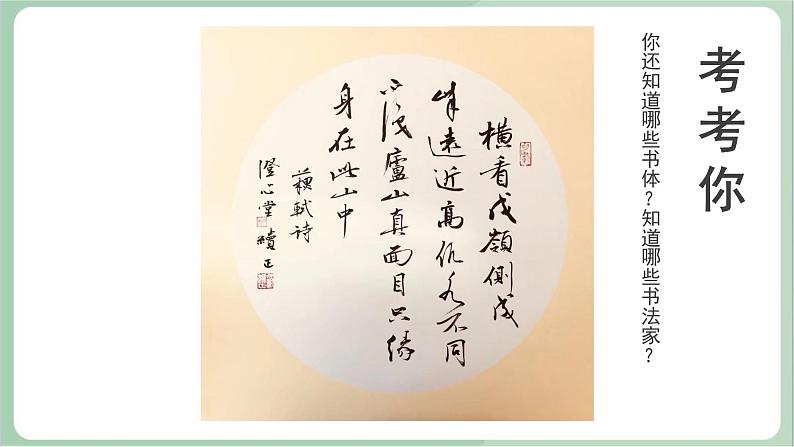 考考你
你还知道哪些书体？知道哪些书法家？
横看成嶺側成
峰遠近高低各不同
不識廬山真面目只緣
身在此山中
蘇軾诗
澄心堂 續正